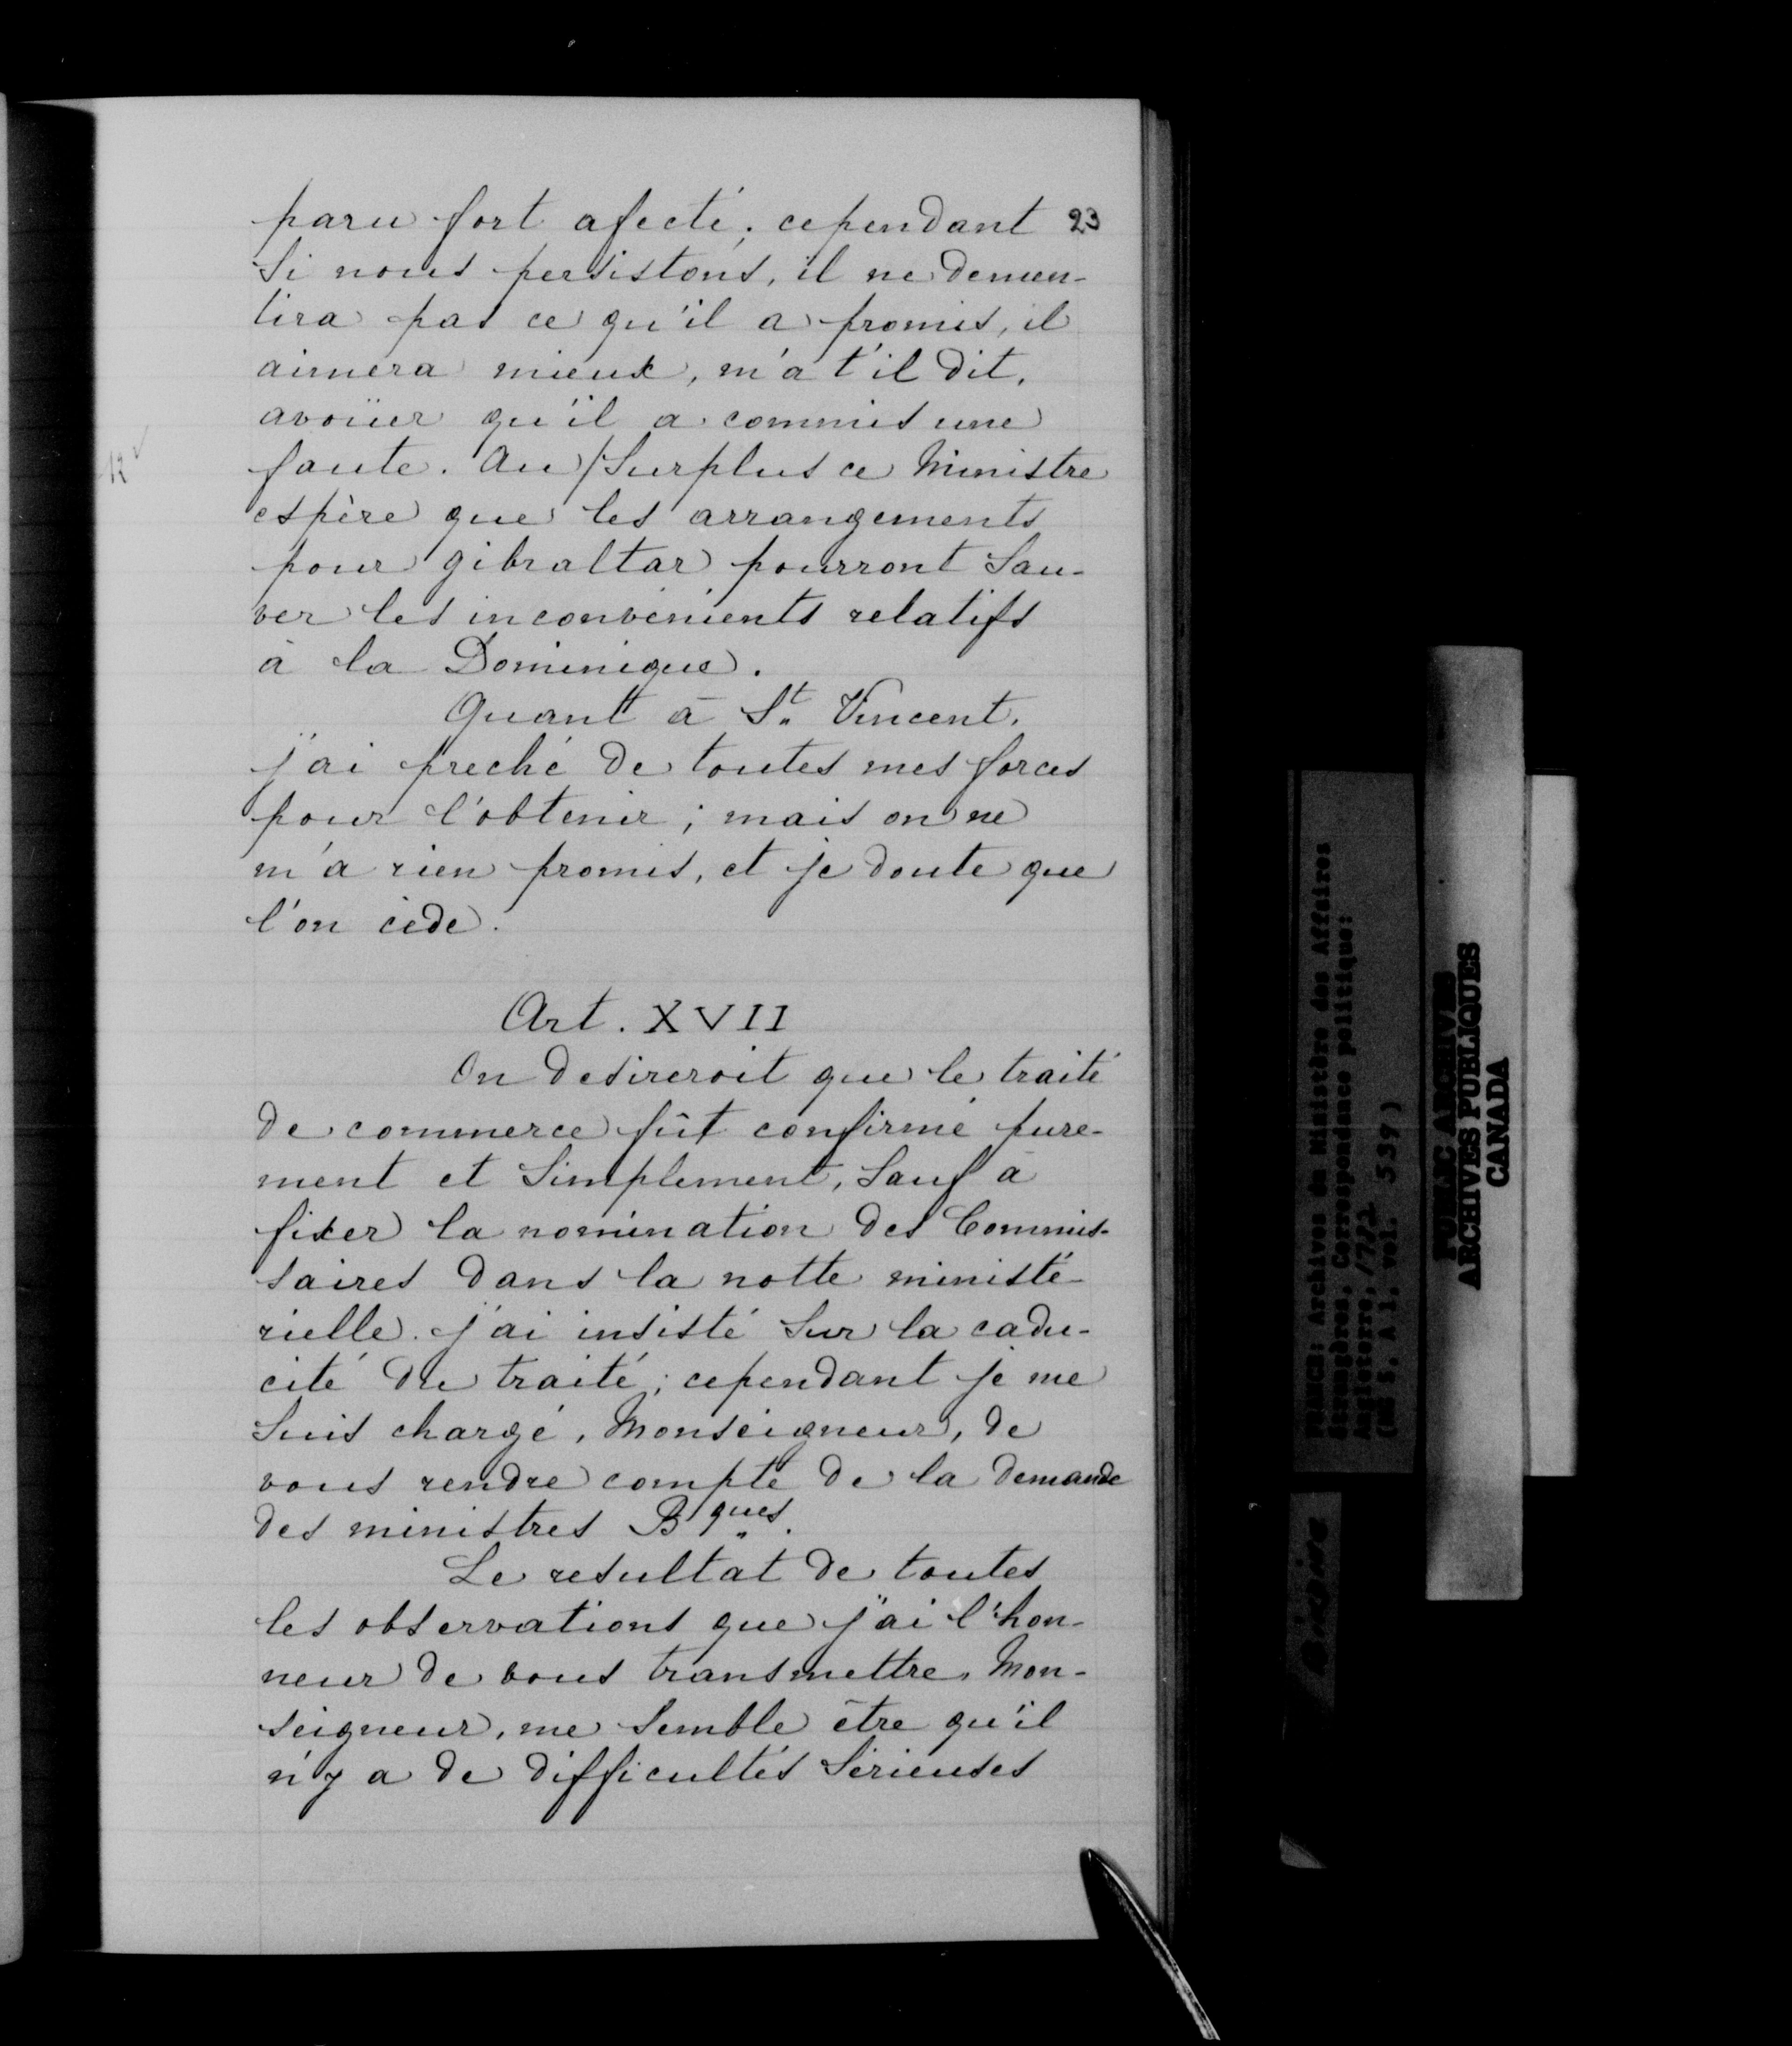 paru fort afecté; cependant 23
Si nous persistons, il ne demen-
tira pas ce qu'il a promis, il
aimera mieux, m'a t'il dit,
avoüer qu'il a commis une
faute. Au/Surplus ce Ministre
espère que les arrangements
pour gibraltar pourront Sau-
ver les inconvénients relatifs
à la Dominique.
Quant à St. Vincent,
j'ai preché de toutes mes forces
pour l'obtenir; mais on ne
m'a rien promis, et je doute que
l'on cède.
Art. XVII
On desireroit que le traité
de commerce fût confirmé pure-
ment et Simplement, Sauf à
fixer la nomination des Commis-
saires dans la notte ministé-
rielle. j'ai insisté Sur la cadu-
cité du traité; cependant je me
Suis chargé, Monseigneur, de
vous rendre compte de la demande
des ministres Bques.
Le resultat de toutes
les observations que j'ai l'hon-
neur de vous transmettre, Mon-
seigneur, me Semble être qu'il
n'y a de difficultés Sérieuses
PUBLIC ARCHIVES
ARCHIVES PUBLIQUES
CANADA
Archives du Ministère des Affaires
étrangères, Correspondance politique:
Angleterre,
(MG 5, A 1, vol. 539)